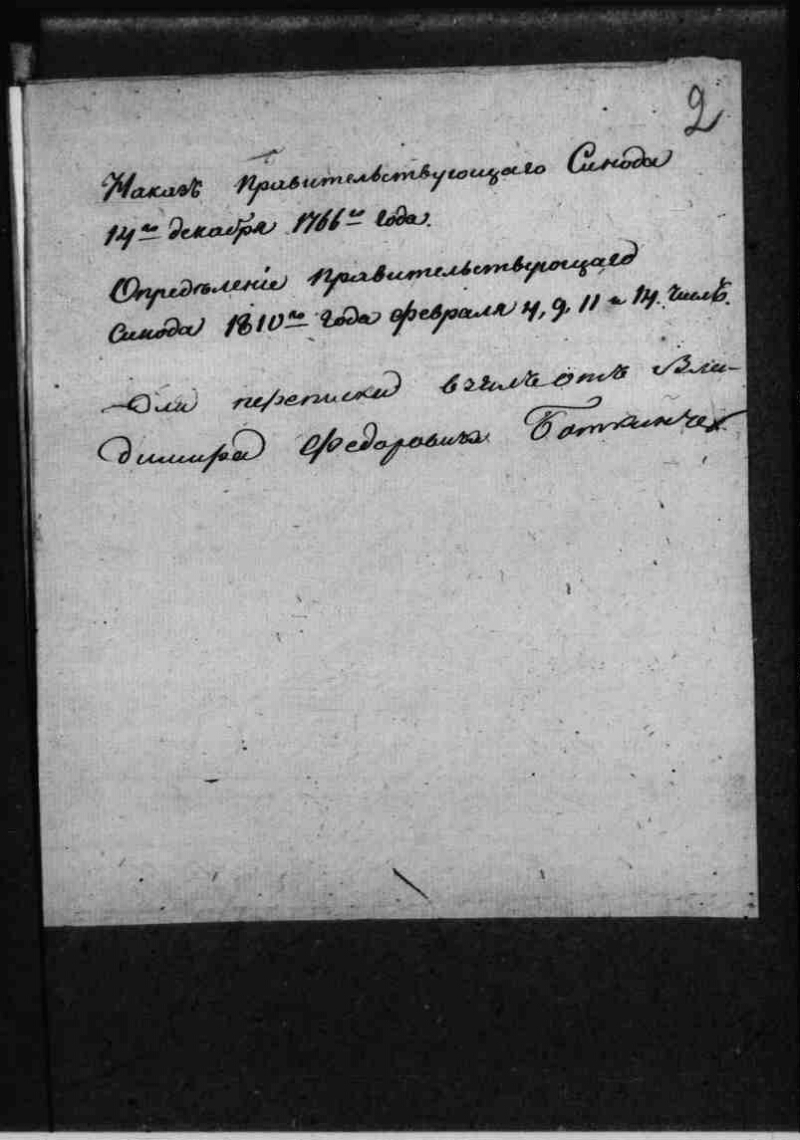 2
Наказъ Правительствующаго Синода
14го декабря 1766го года.
Определенiе Правительствующаго
Синода 1810го года февраля 4, 9, 11 и 14. числъ.
Для переписки взялъ отъ Вла-
димира Федоровича